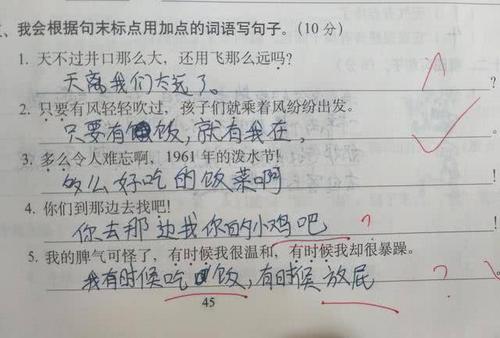 、我会根据句末标点用加点的词语写句子。(10分)
1. 天不过井口那么大，还用飞那么远吗?
天离我们太远了。 ?
2. 只要有风轻轻吹过，孩子们就乘着风纷纷出发。
只要有饭，就有我在，
3. 多么令人难忘啊，1961年的泼水节!
多么好吃的饭菜啊 !
4. 你们到那边去找吧!
你去那边找你的小鸡吧 ?
5. 我的脾气可怪了，有时候我很温和，有时候我却很暴躁。
我有时候吃饭，有时候放屁 ?
45